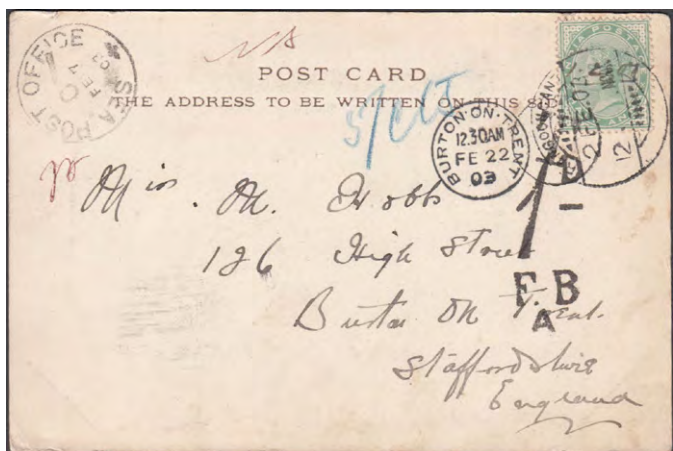 SEA POST OFFICE
C
FE 7
03
POST CARD
THE ADDRESS TO BE WRITTEN ON THIS SID
BURTON-ON-TRENT
12.30AM
FE 22
03
Miss. M. Hobbs
126 High Street
Burton On Trent.
Staffordshire
England
1D
F.B
A